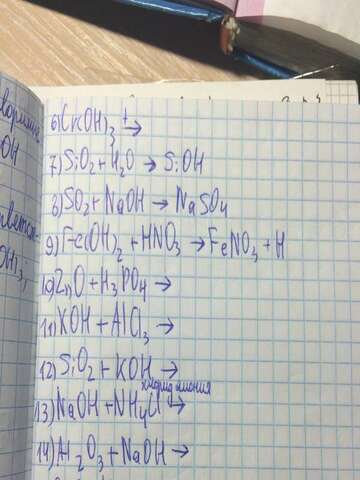 6) Cr(OH)₃ t→
7) SiO₂ + H₂O → SiOH
8) SO₂ + NaOH → NaSO₄
9) Fe(OH)₂ + HNO₃ → FeNO₃ + H
10) ZnO + H₃PO₄ →
11) KOH + AlCl₃ →
12) SiO₂ + KOH →
хлорид амония
13) NaOH + NH₄Cl →
14) Al₂O₃ + NaOH →